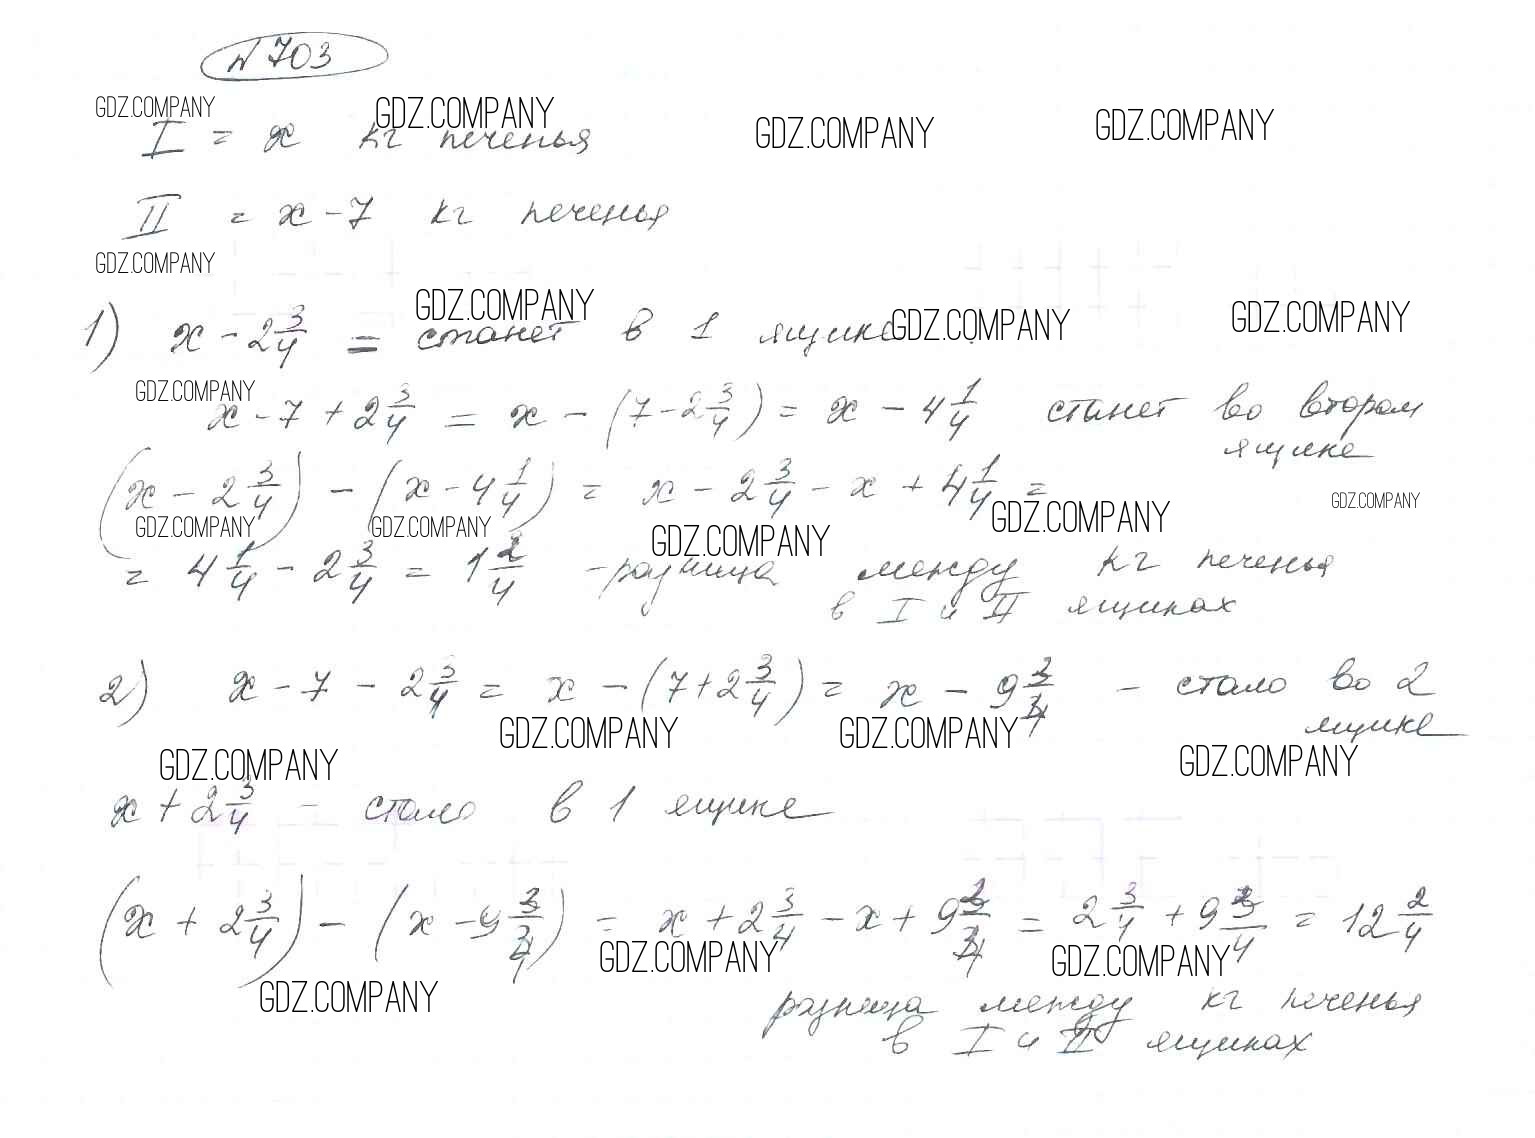 N 703
GDZ.COMPANY GDZ.COMPANY GDZ.COMPANY GDZ.COMPANY
I = x кг печенья
II = x - 7 кг печенья
GDZ.COMPANY
GDZ.COMPANY GDZ.COMPANY GDZ.COMPANY
1) x - 2 3/4 = станет в 1 ящике
GDZ.COMPANY
x - 7 + 2 3/4 = x - (7 - 2 3/4) = x - 4 1/4 станет во втором
ящике
(x - 2 3/4) - (x - 4 1/4) = x - 2 3/4 - x + 4 1/4 =
GDZ.COMPANY GDZ.COMPANY GDZ.COMPANY GDZ.COMPANY GDZ.COMPANY
= 4 1/4 - 2 3/4 = 1 2/4 - разница между кг печенья
в I и II ящиках
2) x - 7 - 2 3/4 = x - (7 + 2 3/4) = x - 9 3/4 - стало во 2
ящике
GDZ.COMPANY GDZ.COMPANY GDZ.COMPANY GDZ.COMPANY
x + 2 3/4 - стало в 1 ящике
(x + 2 3/4) - (x - 9 3/4) = x + 2 3/4 - x + 9 3/4 = 2 3/4 + 9 3/4 = 12 2/4
GDZ.COMPANY GDZ.COMPANY GDZ.COMPANY
разница между кг печенья
в I и II ящиках